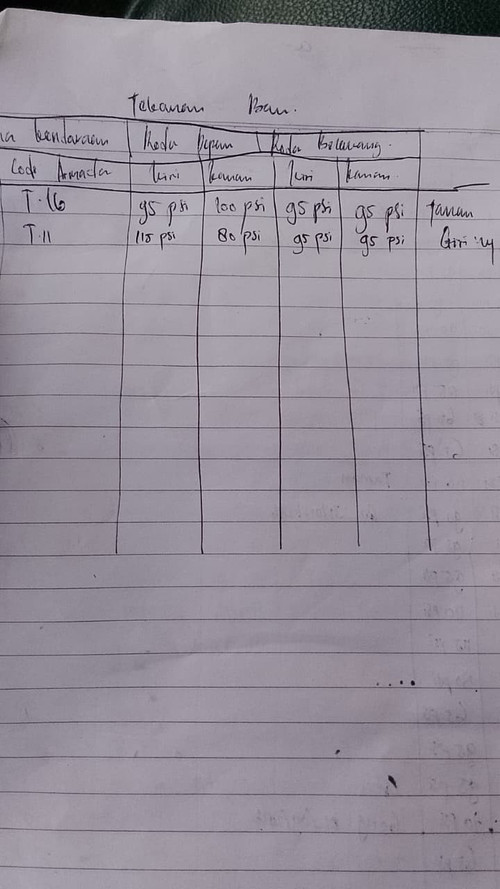 Tekanan Ban.
na kendaraan Roda Depan Roda Belakang.
Code Armada kiri kanan kiri kanan.
T.16 95 psi 100 psi 95 psi 95 psi taman
T.11 115 psi 80 psi 95 psi 95 psi